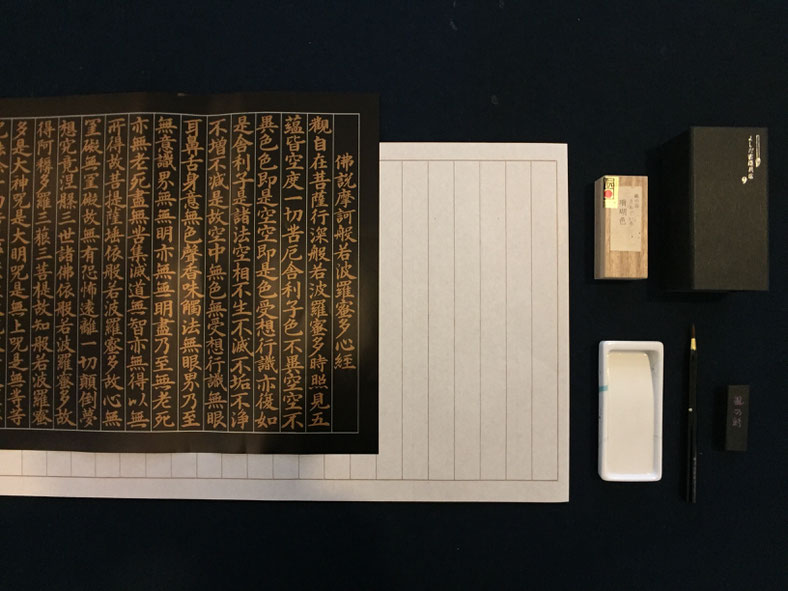 佛説摩訶般若波羅蜜多心經
觀自在菩薩行深般若波羅蜜多時照見五
蘊皆空度一切苦厄舍利子色不異空空不
異色色即是空空即是色受想行識亦復如
是舍利子是諸法空相不生不滅不垢不浄
不增不減是故空中無色無受想行識無眼
耳鼻舌身意無色聲香味觸法無眼界乃至
無意識界無無明亦無無明盡乃至無老死
亦無老死盡無苦集滅道無智亦無得以無
所得故菩提薩埵依般若波羅蜜多故心無
罣礙無罣礙故無有恐怖遠離一切顛倒夢
想究竟涅槃三世諸佛依般若波羅蜜多故
得阿耨多羅三藐三菩提故知般若波羅蜜
多是大神呪是大明呪是無上呪是無等等
珊瑚色